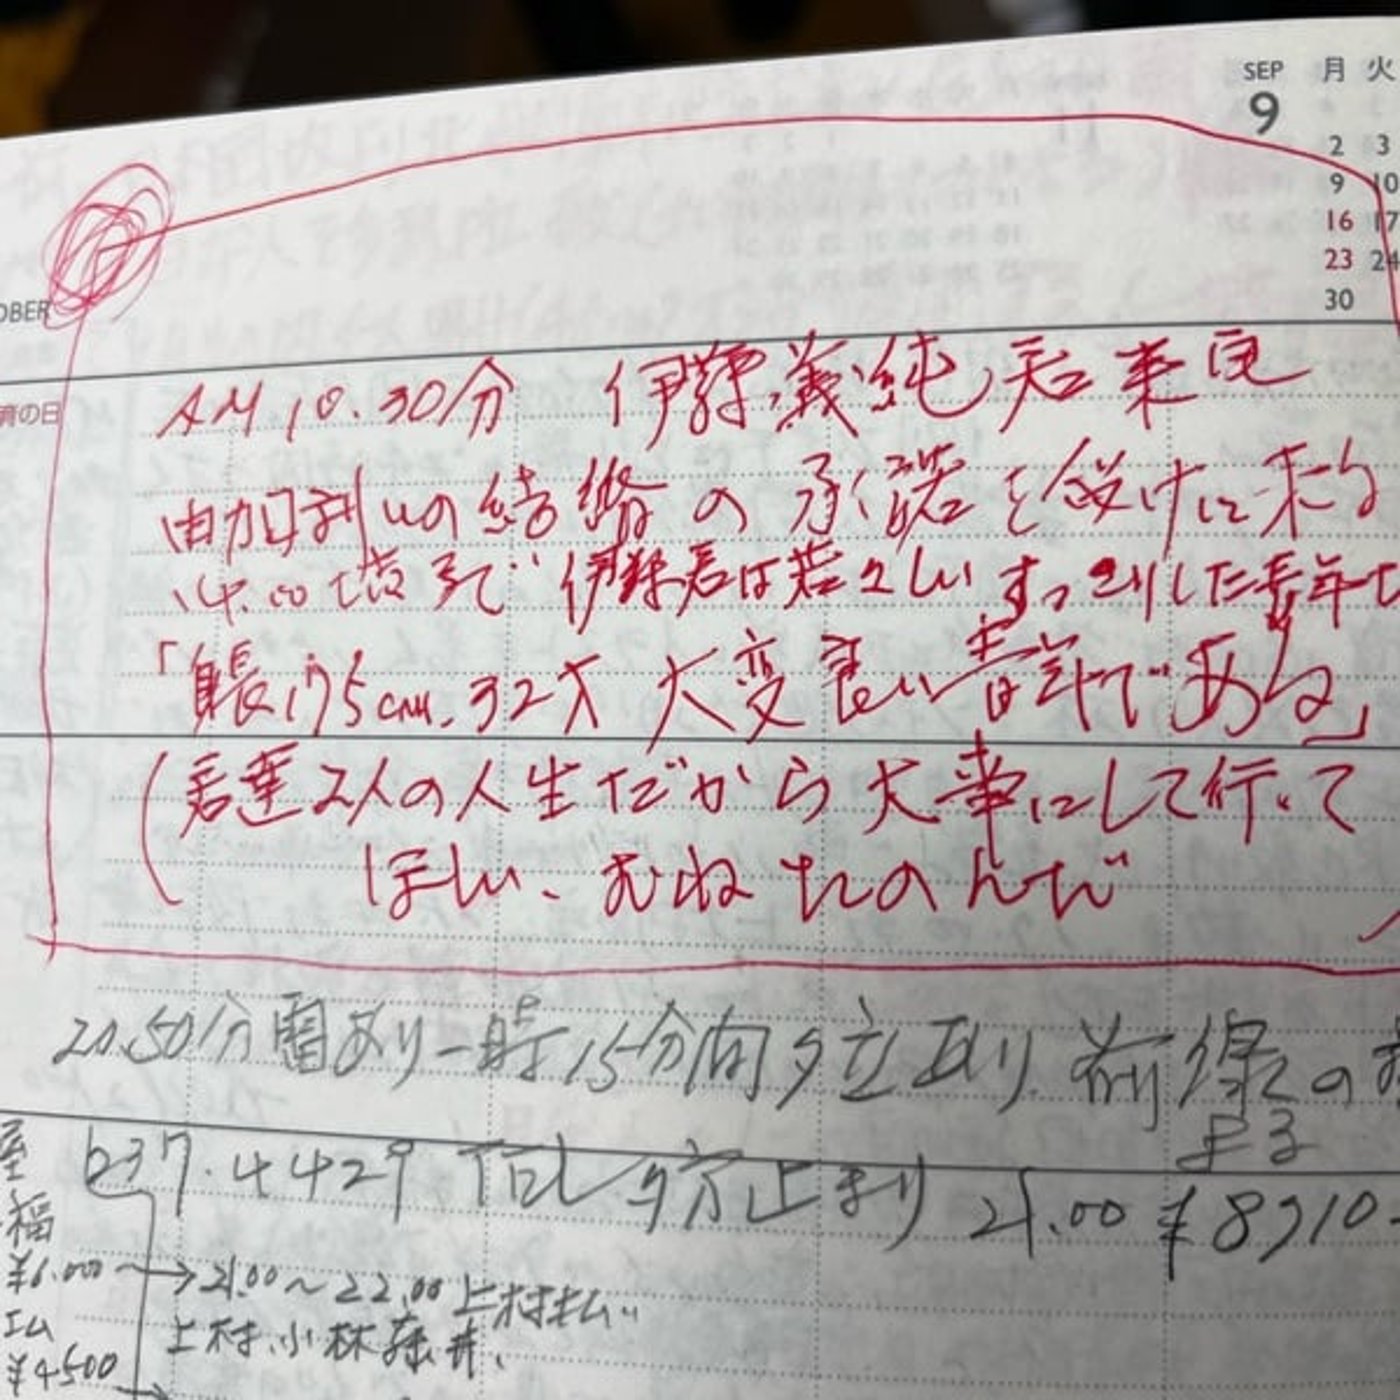 SEP 月 火
9
2 3
9 10
16 17
23 24
30
OBER
の日
AM 10.30分 伊藤義純君来宅
由加利との結婚の承諾を受けに来る
14.00 伊藤君は若々しい すっきりした青年
「身長175cm. 32才 大変良い青年である」
(君達2人の人生だから大事にして行って
ほしい、むねたのんだ)
20.50分雷あり一時15分間夕立あり 前線の
637.4429 夕方止まり 21.00 ¥8910-
福
¥6.000 → 21.00~22.00 上村払い
上村.小林藤井.
エム
¥4500